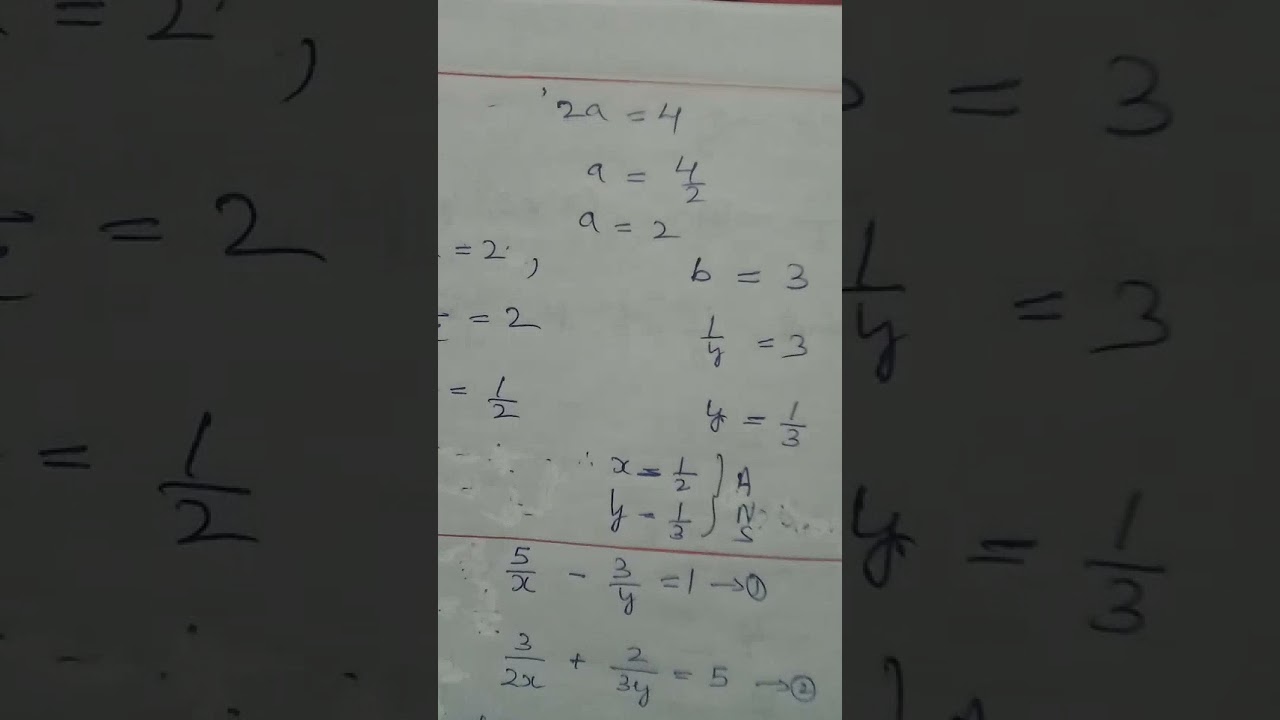 2a = 4
a = 4/2
a = 2
= 2, b = 3
= 2 1/y = 3
= 1/2 y = 1/3
∴ x = 1/2 } A
y = 1/3 } N
S
5/x - 3/y = 1 → ①
3/2x + 2/3y = 5 → ②